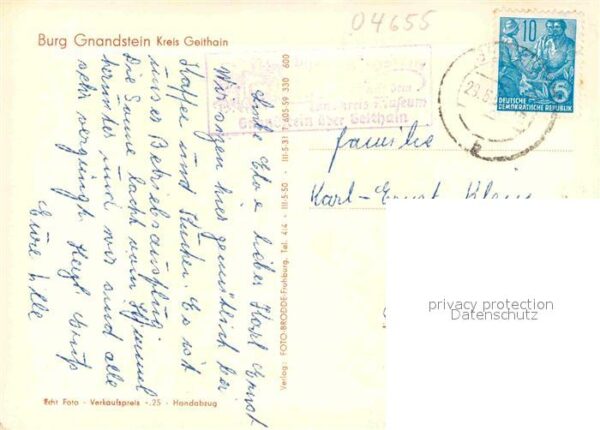 04655
Burg Gnandstein Kreis Geithain
10
DEUTSCHE
DEMOKRATISCHE REPUBLIK
5
mit dem
Landkreis Museum
Gnandstein über Geithain
Liebe Elve lieber Karl Ernst
Wir sitzen hier gemütlich bei
Kaffee und Kuchen. Es ist
unser Betriebsausflug
Die Sonne lacht vom Himmel
herunter und wir sind alle
sehr vergnügt. Herzl. Gruß
Eure Elle
Verlag: FOTO-BRODDE-Frohburg, Tel. 414 · III/5/50 · III-5-31 T 605-59 330 600
Familie
Karl-Ernst Klein
privacy protection
Datenschutz
Echt Foto · Verkaufspreis -.25 · Handabzug